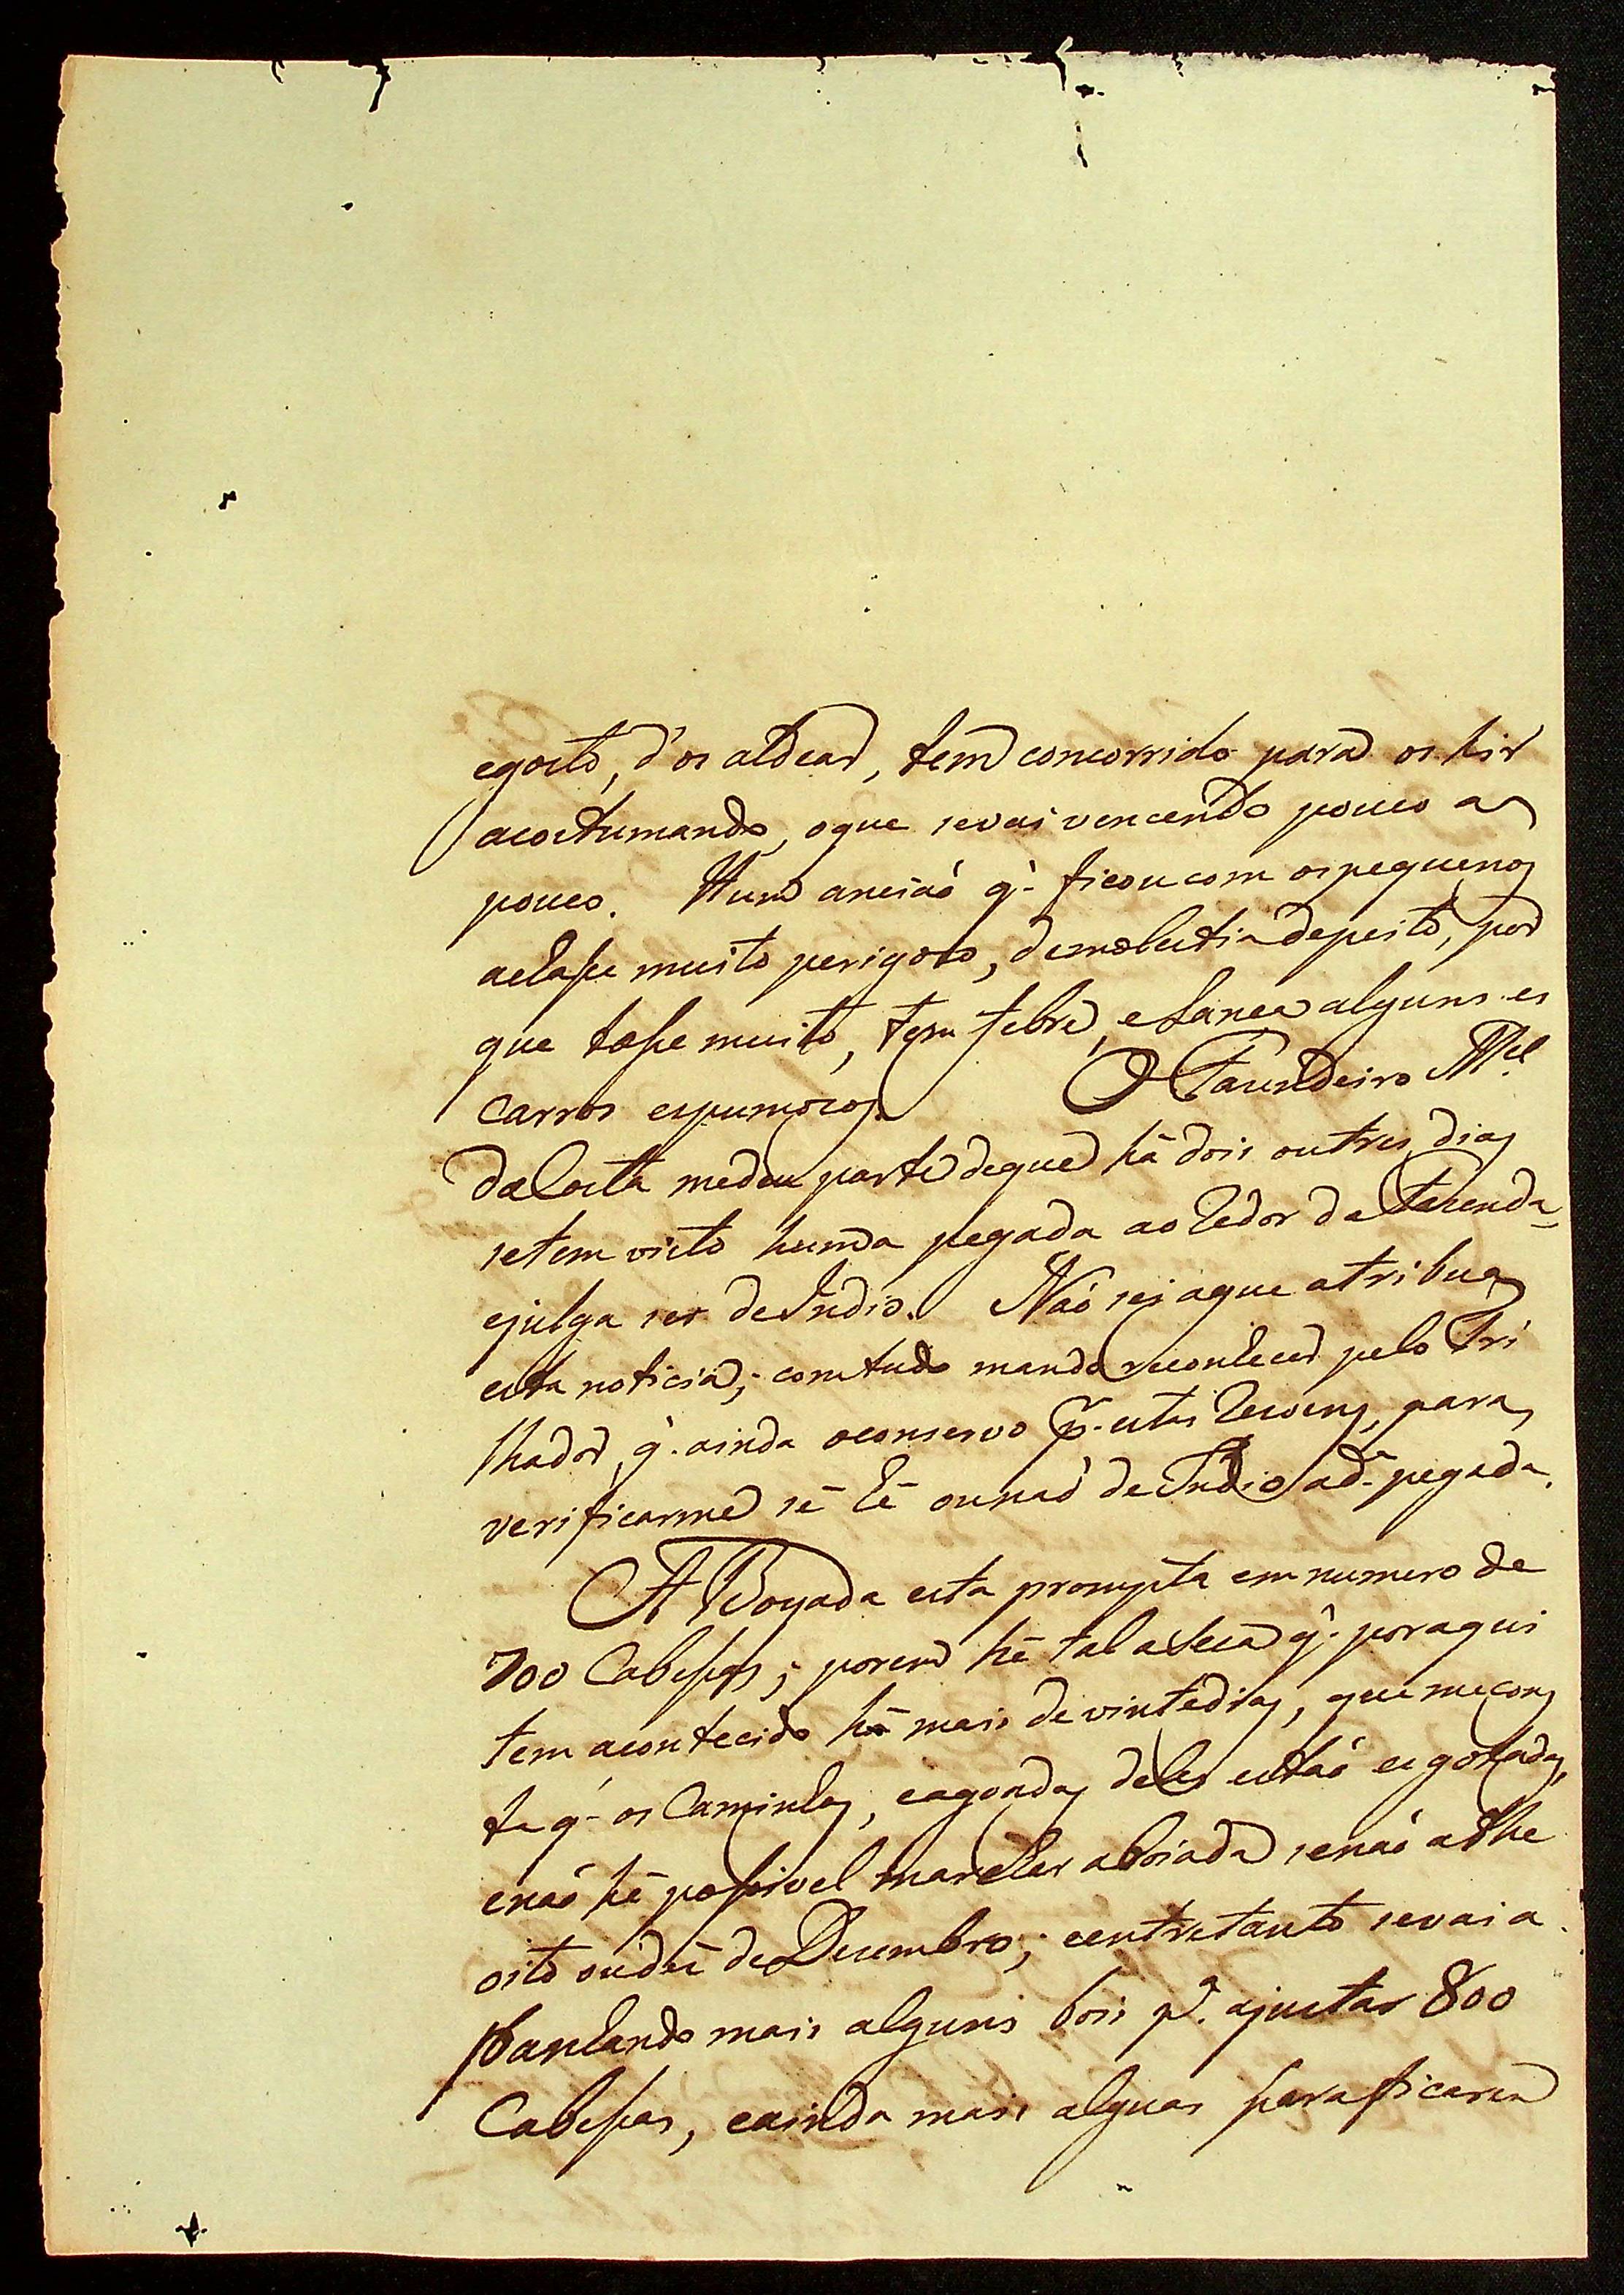 egosto, d'os aldear, tem concorrido para os hir
acostumando, oque sevai vencendo pouco a
pouco. Hum anciaõ q̃ ficou com os pequenos
achase muito perigoso, demolestia depeito, por
que tosse muito, tem febre, elansa alguns es
carros espumosos. O Fasendeiro Mel
da Costa medeu parte deque há dois outres dias
setem visto huma pegada ao redor da Fasenda
ejulga ser de Indio. Naõ sei aque atribua
esta noticia; comtudo mando reconhecer pelo Tri
lhador, q̃ ainda oconservo p.ª estas ocasioens, para
verificarme sé hé ounaõ de Indio ad.ª pegada.
A Boyada esta prompta em numero de
700 Cabessas; porem hé tal aseca q̃ poraqui
tem acontecido há mais devintedias, que mecons
ta q̃ os Caminhos, eagoadas deles estaõ esgotadas,
enaõ hé possivel marchar aboiada senaõ athe
oito oudés de Desembro; eentretanto sevai a
panhando mais alguns bois p.ª ajustar 800
Cabessas, eainda mais alguas paraficarem